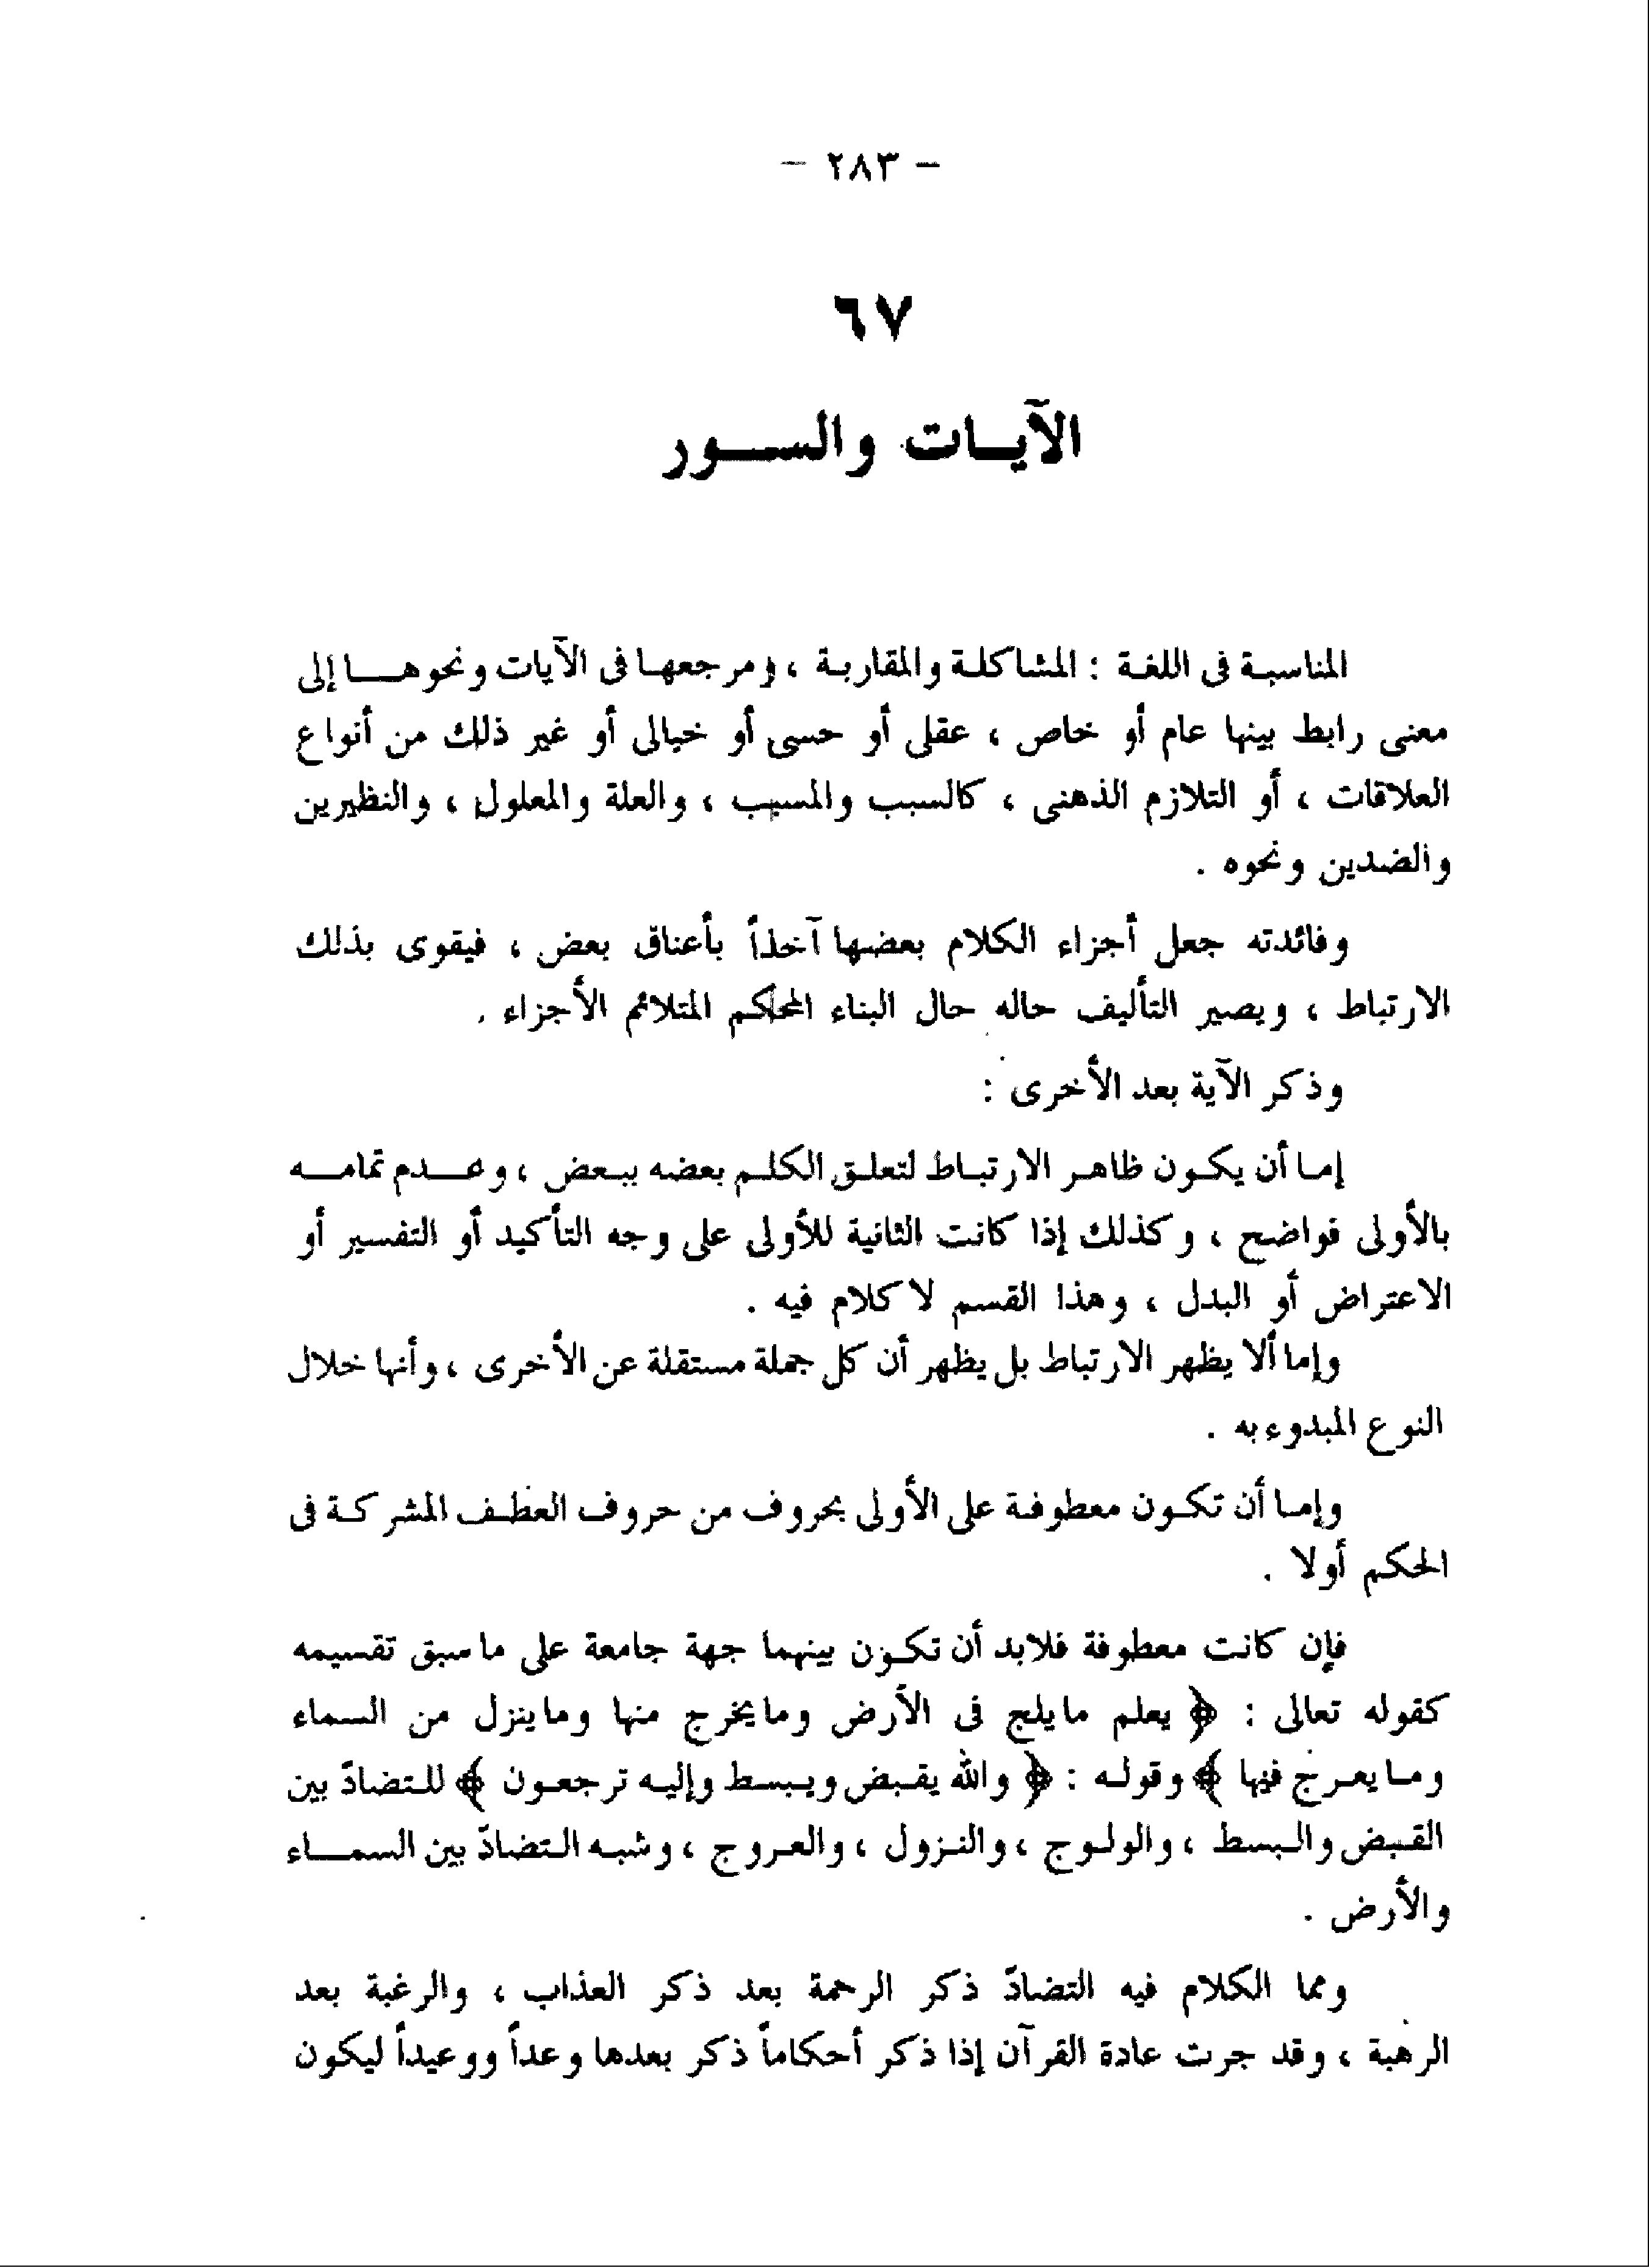 - ٢٨٣ -
٦٧
الآيات والسور
المناسبة فى اللغة : المشاكلة والمقاربة ، ومرجعها فى الآيات ونحوها إلى
معنى رابط بينها عام أو خاص ، عقلى أو حسى أو خيالى أو غير ذلك من أنواع
العلاقات ، أو التلازم الذهنى ، كالسبب والمسبب ، والعلة والمعلول ، والنظيرين
والضدين ونحوه .
وفائدته جعل أجزاء الكلام بعضها آخذاً بأعناق بعض ، فيقوى بذلك
الارتباط ، ويصير التأليف حاله حال البناء المحكم المتلائم الأجزاء .
وذكر الآية بعد الأخرى :
إما أن يكون ظاهر الارتباط لتعلق الكلم بعضه ببعض ، وعدم تمامه
بالأولى فواضح ، وكذلك إذا كانت الثانية للأولى على وجه التأكيد أو التفسير أو
الاعتراض أو البدل ، وهذا القسم لا كلام فيه .
وإما ألا يظهر الارتباط بل يظهر أن كل جملة مستقلة عن الأخرى ، وأنها خلال
النوع المبدوء به .
وإما أن تكون معطوفة على الأولى بحروف من حروف العطف المشركة فى
الحكم أولا .
فإن كانت معطوفة فلابد أن تكون بينهما جهة جامعة على ما سبق تقسيمه
كقوله تعالى : ﴿ يعلم ما يلج فى الأرض وما يخرج منها وما ينزل من السماء
وما يعرج فيها ﴾ وقوله : ﴿ والله يقبض ويبسط وإليه ترجعون ﴾ للتضادّ بين
القبض والبسط ، والولوج ، والنزول ، والعروج ، وشبه التضادّ بين السماء
والأرض .
ومما الكلام فيه التضادّ ذكر الرحمة بعد ذكر العذاب ، والرغبة بعد
الرهبة ، وقد جرت عادة القرآن إذا ذكر أحكاماً ذكر بعدها وعداً ووعيداً ليكون